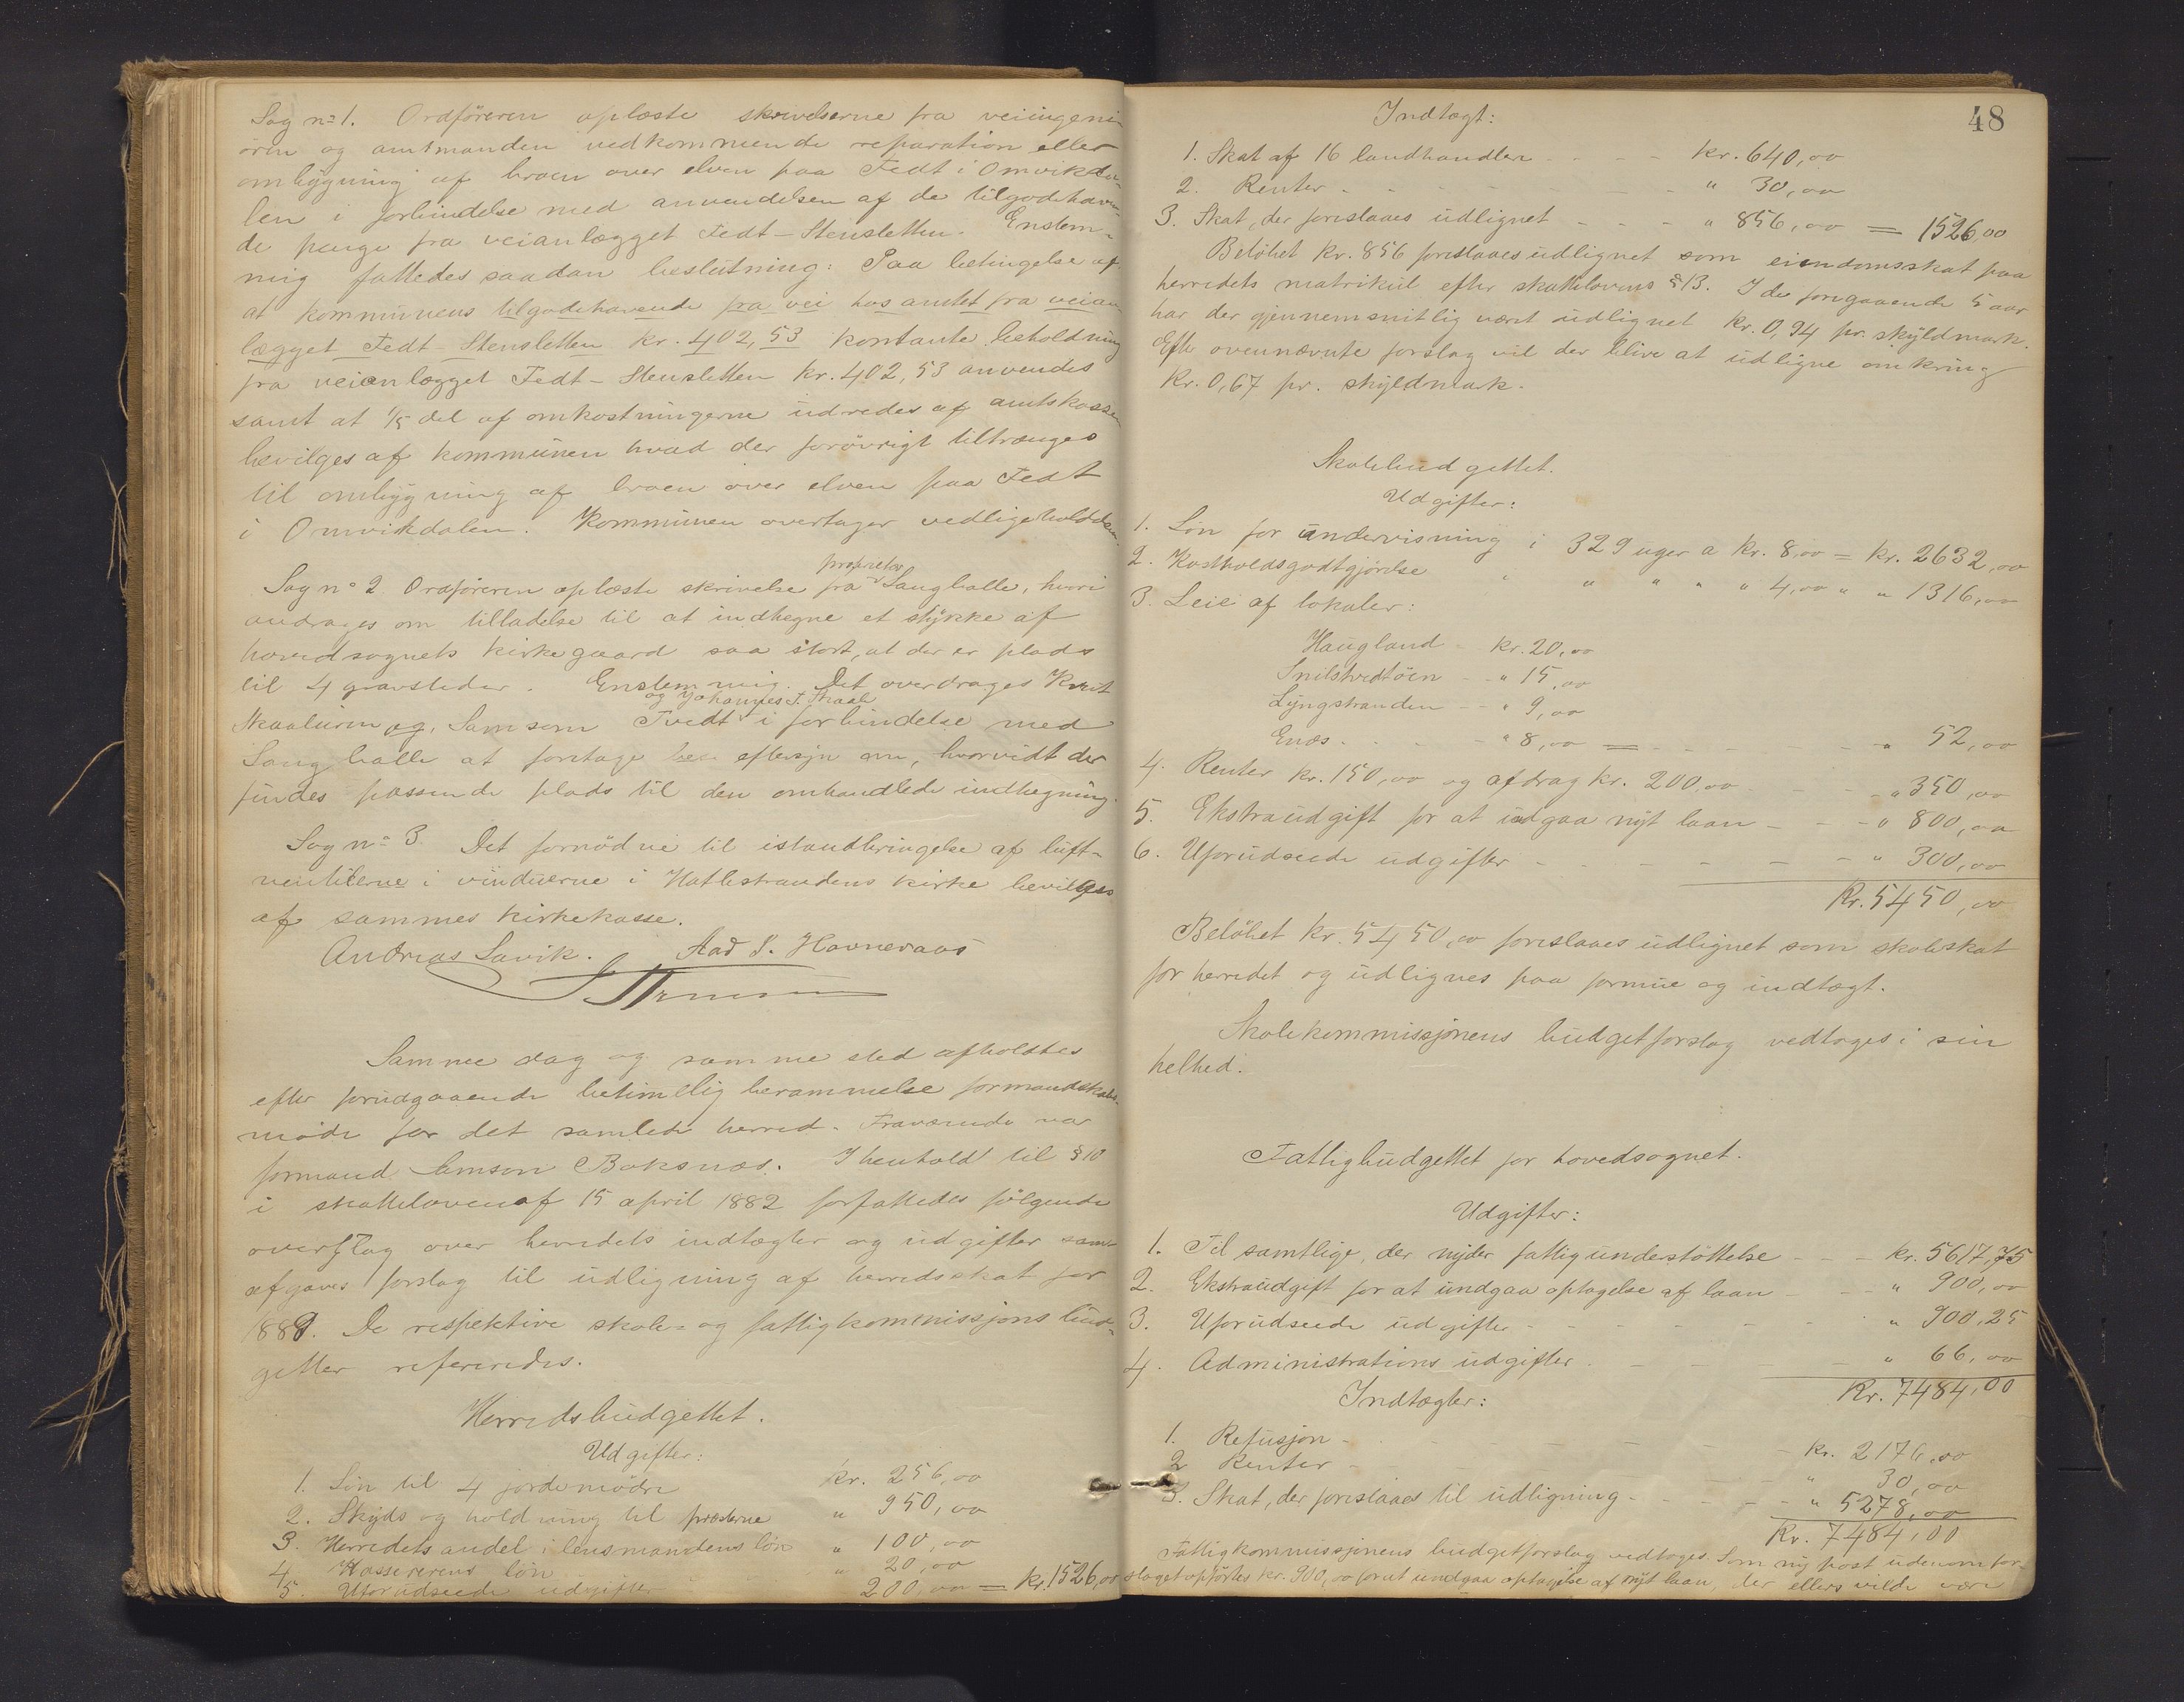 Sag no 1. Ordføreren oplæste skrivelserne fra veiingeni-
øren og amtmanden vedkommende reparation eller
ombygning af broen over elven paa Tedt i Omvikda-
len i forbindelse med anvendelsen af de tilgodehaven-
de penge fra veianlægget Tedt-Stensletten. Enstem-
mig fattedes saadan beslutning: Paa betingelse af
at kommunens tilgodehavende fra vei hos amtet fra veian-
lægget Tedt-Stensletten kr. 402,53 kontante beholdning
fra veianlægget Tedt-Stensletten kr. 402,53 anvendes
samt at 1/5 del af omkostningerne udredes af amtskassen
bevilges af kommunen hvad der forøvrigt tiltrænges
til ombygning af broen over elven paa Tedt
i Omvikdalen. Kommunen overtager vedligeholdelsen.
Sag no 2. Ordføreren oplæste skrivelse fra proprietær Laughalle, hvori
andrages om tilladelse til at indhegne et stykke af
hovedsognets kirkegaard saa stort, at der er plads
til 4 gravsteder. Enstemmig. Det overdrages Knut
Skaaluren og Samson Tvedt og Johannes T. Skaale i forbindelse med
Laughalle at foretage eftersyn om, hvorvidt der
findes passende plads til den omhandlede indhegning.
Sag no 3. Det fornødne til istandbringelse af luft-
ventilerne i vinduerne i Hatlestrandens kirke bevilges
af sammes kirkekasse.
Andreas Lavik. Aad S. Havneraas
Samme dag og samme sted afholdtes
efter forudgaaende betimelig berammelse formandskabs-
møde for det samlede herred. Fraværende var
formand Samson Baksnæs. I henhold til § 10
i skatteloven af 15 april 1882 forfattedes følgende
overslag over herredets indtægter og udgifter sam-
afgaves forslag til udligning af herredsskat for
1889. De respektive skole- og fattigkommissjons bud-
getter refereredes.
Herredsbudgettet.
Udgifter:
1. Løn til 4 jordemødre kr. 256,00
2. Skyds og holdning til præsterne " 950,00
3. Herredets andel i lensmandens løn " 100,00
4. Kassererens løn " 20,00
5. Uforudseede udgifter 200,00 = kr. 1526,00
48
Indtægt:
1. Skat af 16 landhandlere - - - kr. 640,00
2. Renter - - - - - " 30,00
3. Skat, der foreslaaes udlignet - - - " 856,00 = 1526,00
Beløbet kr. 856 foreslaaes udlignet som eiendomsskat paa
herredets matrikul efter skattelovens § 13. I de foregaaende 5 aar
har der gjennemsnitlig været udlignet kr. 0,94 pr. skyldmark.
Efter ovennævnte forslag vil der blive at udligne omkring
kr. 0,67 pr. skyldmark.
Skolebudgettet.
Udgifter:
1. Løn for undervisning i 329 uger a kr. 8,00 = kr. 2632,00
2. Kostholdsgodtgjørelse " " " " " 4,00 " " 1316,00
3. Leie af lokaler:
Haugland - kr. 20,00
Snilstvedtøen - " 15,00
Lyngstranden - - " 9,00
Enæs - - - " 8,00 = - - - - " 52,00
4. Renter kr. 150,00 og afdrag kr. 200,00 - - - " 350,00
5. Ekstraudgift for at undgaa nyt laan - - - " 800,00
6. Uforudseede udgifter - - - - - - " 300,00
Kr. 5450,00
Beløbet kr. 5450,00 foreslaaes udlignet som skoleskat
for herredet og udlignes paa formue og indtægt.
Skolekommissjonens budgetforslag vedtoges i sin
helhed.
Fattigbudgettet for hovedsognet.
Udgifter:
1. Til samtlige, der nyder fattigunderstøttelse - - - kr. 5617,75
2. Ekstraudgift for at undgaa optagelse af laan - - - " 900,00
3. Uforudseede udgifter - - - - - " 900,25
4. Administrations udgifter - - - " 66,00
Kr. 7484,00
Indtægter:
1. Refusjon - - - - - - kr. 2176,00
2 Renter - - - - - " 30,00
3. Skat, der foreslaaes til udligning - - - - " 5278,00
Kr. 7484,00
Fattigkommissjonens budgetforslag vedtoges. Som ny post udenom for-
slaget opførtes kr. 900,00 for at undgaa optagelse af nyt laan, der ellers vilde være